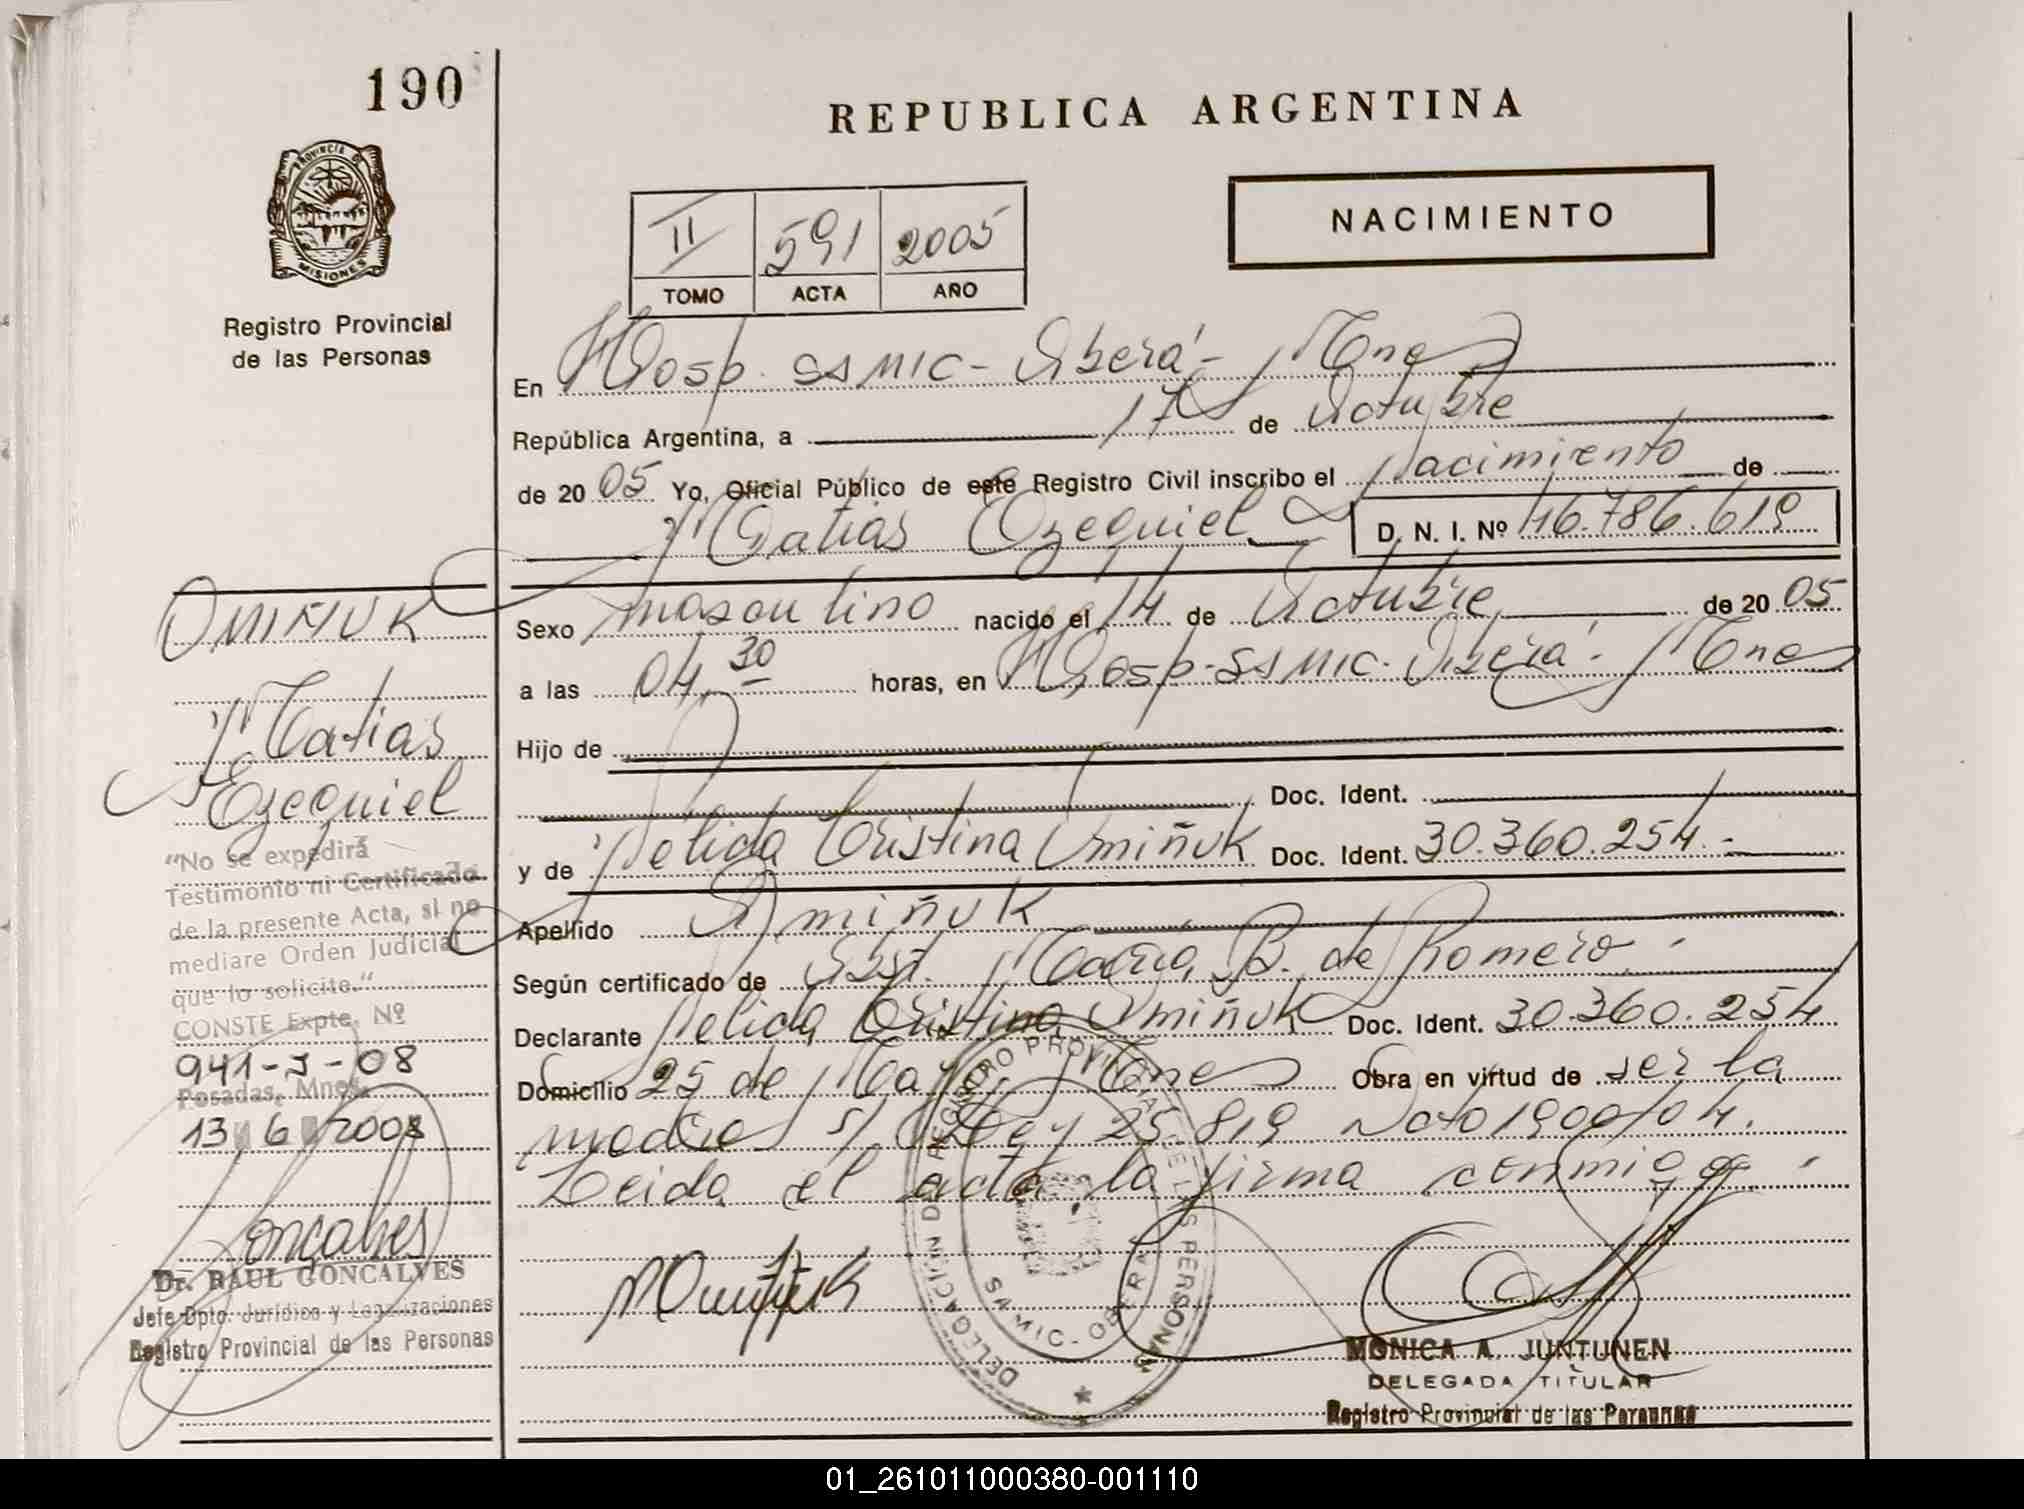 190
PROVINCIA DE
MISIONES
Registro Provincial
de las Personas
REPUBLICA ARGENTINA
NACIMIENTO
II 591 2005
TOMO ACTA AÑO
En Hosp. SAMIC - Oberá - Mnes
República Argentina, a 17 de Octubre
de 20 05 Yo, Oficial Público de este Registro Civil inscribo el Nacimiento de
Matias Ezequiel D. N. I. Nº 46.786.619
OMIÑUK
Matias
Ezequiel
Sexo masculino nacido el 14 de Octubre de 20 05
a las 04,30 horas, en Hosp. SAMIC. Oberá - Mnes
Hijo de
Doc. Ident.
y de Nelida Cristina Omiñuk Doc. Ident. 30.360.254.-
Apellido Omiñuk
Según certificado de Obst. Maria B. de Romero.
Declarante Nelida Cristina Omiñuk Doc. Ident. 30.360.254
Domicilio 25 de Mayo. Mnes Obra en virtud de ser la
madre s/ Ley 25.819 Dcto 1900/04.
Leida el acta la firma conmigo.
"No se expedirá
Testimonio ni Certificado
de la presente Acta, si no
mediare Orden Judicial
que lo solicite."
CONSTE Expte. Nº
941-J-08
Posadas, Mnes.
13 6 2008
Goncalves
Dr. RAUL GONCALVES
Jefe Dpto. Jurídico y Legalizaciones
Registro Provincial de las Personas
NOmiñuk
DELEGACION DE REGISTRO PROVINCIAL DE LAS PERSONAS
SAMIC - OBERA
MONICA A. JUNTUNEN
DELEGADA TITULAR
Registro Provincial de las Personas
01_261011000380-001110